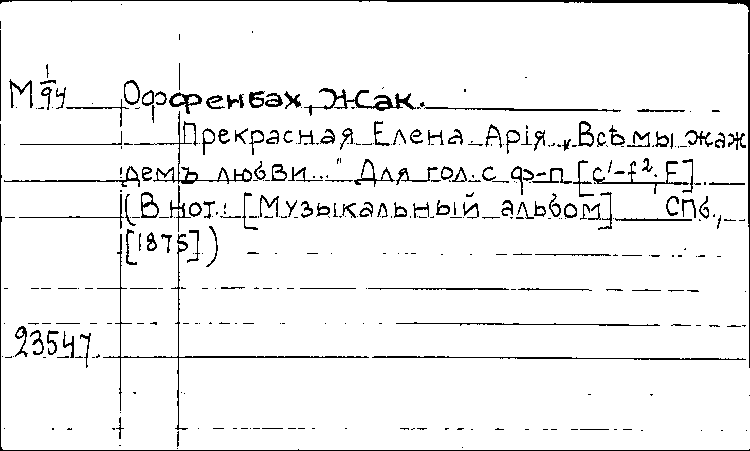 М 1/94 Оффенбах, Жак.
Прекрасная Елена. Арія „Всѣ мы жаж
демъ любви..." Для гол. с ф-п [c'-f²; F]
(В нот.: [Музыкальный альбом] СПб.,
[1875])
23547.